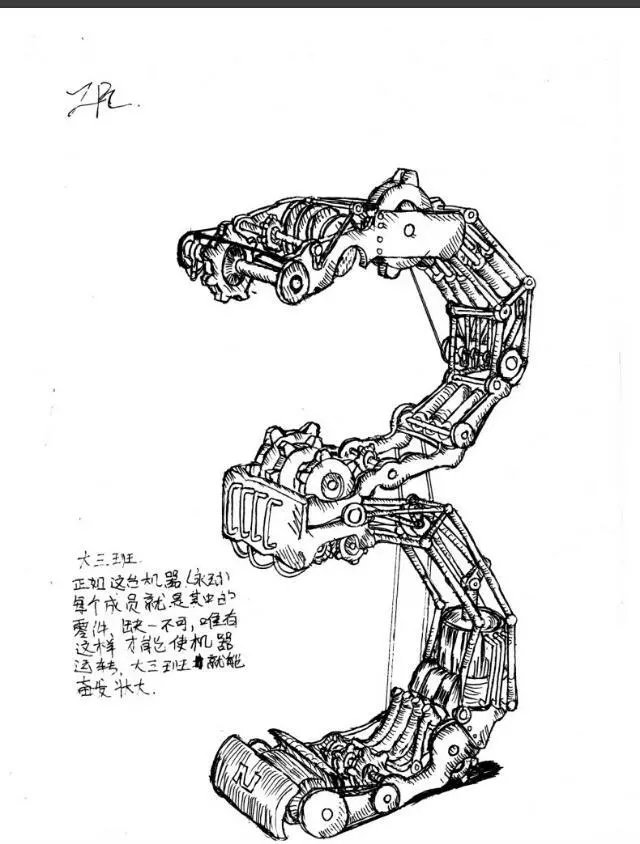 大三班.
正如这台机器(永动)
每个成员就是其中的
零件,缺一不可,唯有
这样才能使机器
运转,大三班就能
奋发壮大.
N